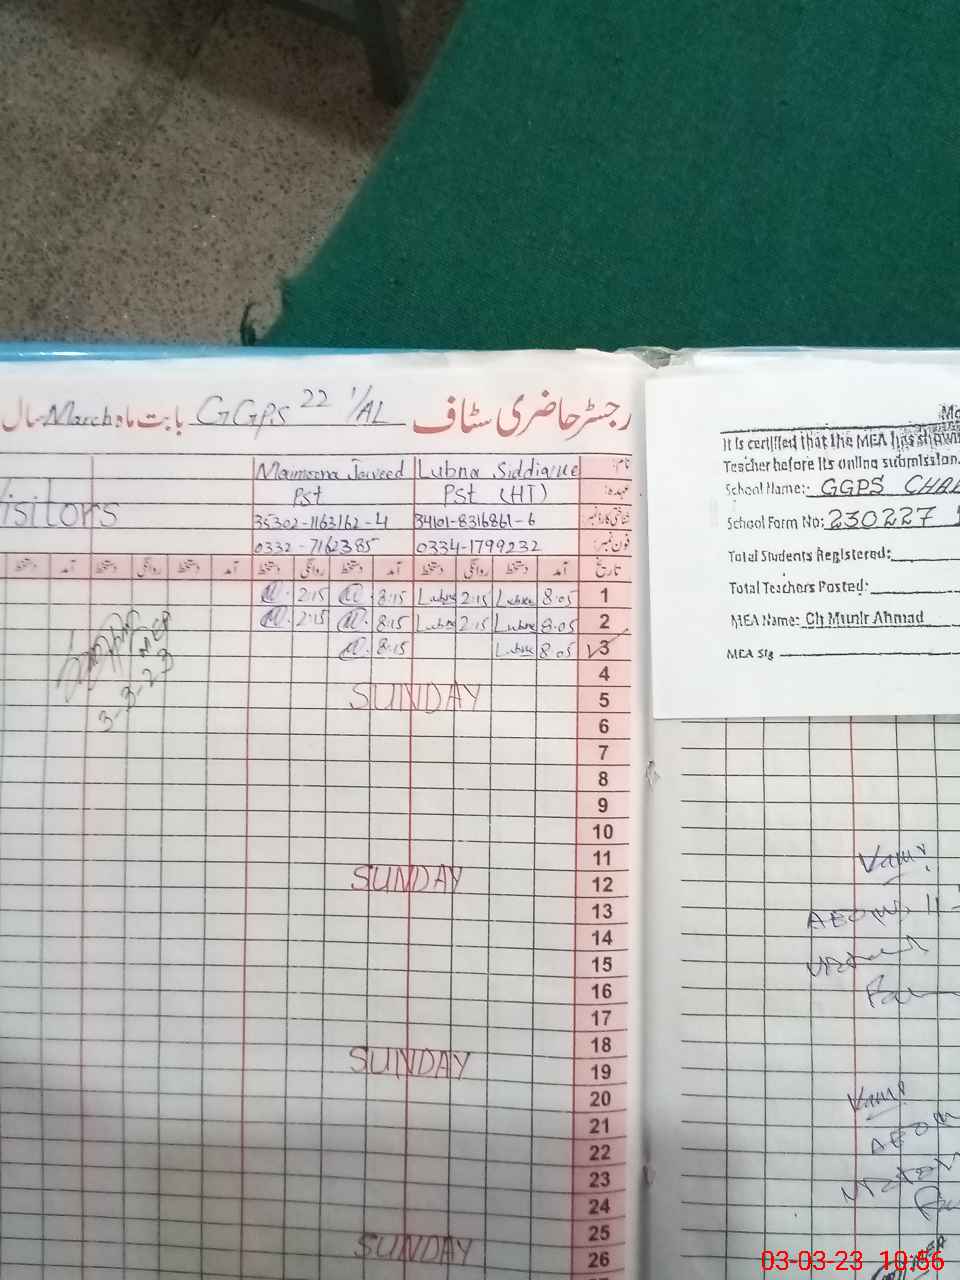 رجسٹر حاضری سٹاف GGPS 22 1/AL بابت ماہ March سال
نام: Lubna Siddique Maimoona Javeed
عہدہ: Pst (HT) Pst
شناختی کارڈ نمبر: 34101-8316861-6 35302-1163162-4
Visitors
فون نمبر: 0334-1799232 0332-7162385
تاریخ آمد دستخط روانگی دستخط آمد دستخط روانگی دستخط آمد دستخط روانگی دستخط آمد
1 8:05 Lubna 2:15 Lubna 8:15 2:15
2 8:05 Lubna 2:15 Lubna 8:15 2:15
3 8:05 Lubna 8:15
MEA
3-3-23
4
5 SUNDAY
6
7
8
9
10
11
12 SUNDAY
13
14
15
16
17
18
19 SUNDAY
20
21
22
23
24
25
26 SUNDAY
It is certified that the MEA has shown
Teacher before its online submission.
School Name:- GGPS
School Form No: 230227
Total Students Registered:
Total Teachers Posted:
MEA Name: Ch Munir Ahmad
MEA Sig
03-03-23 10:56